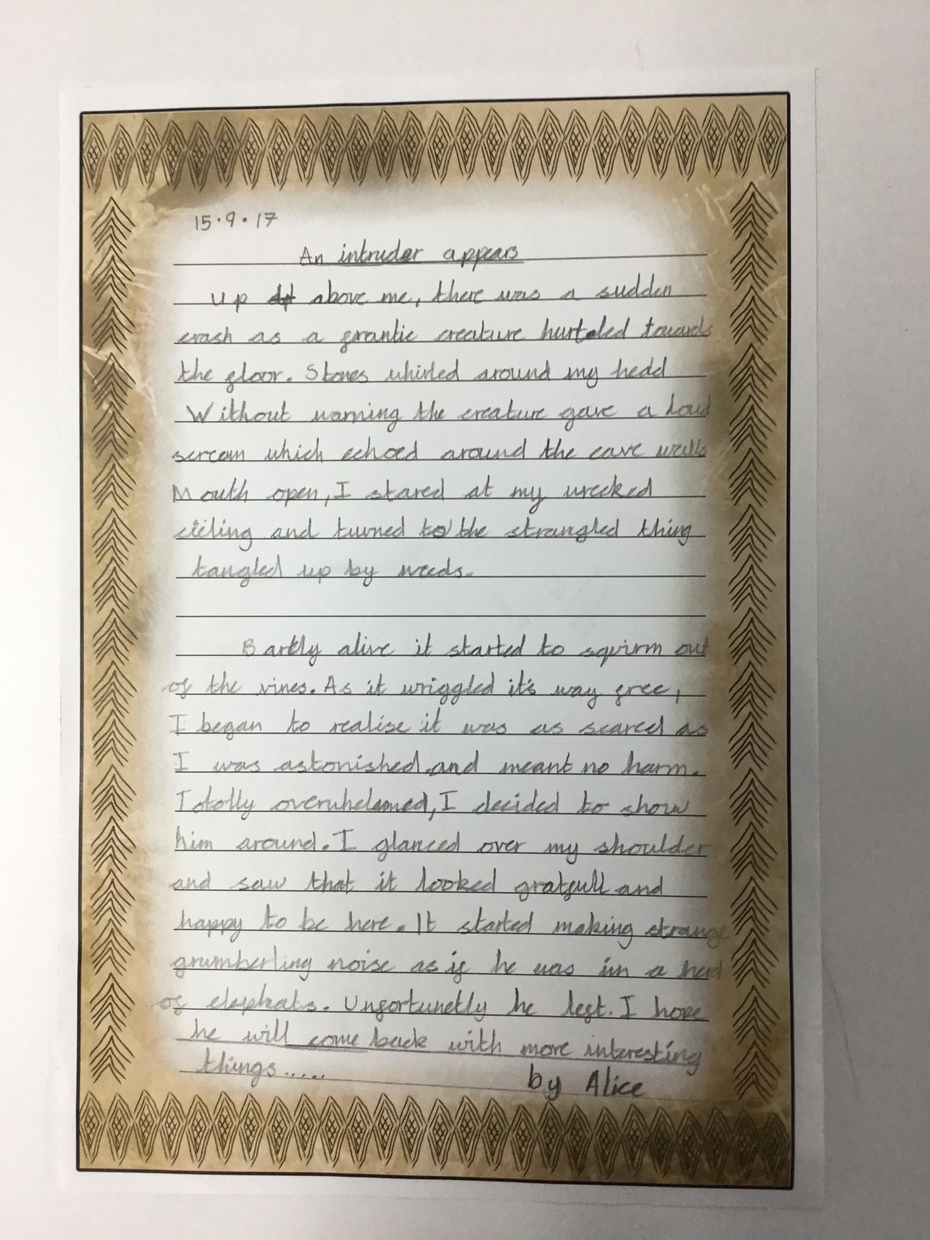 15.9.17
An intruder appears
Up above me, there was a sudden
crash as a giantic creature hurteled towards
the floor. Stones whirled around my head
Without warning the creature gave a loud
scream which echoed around the cave walls
Mouth open, I stared at my wrecked
cieling and turned to the strangled thing
tangled up by weeds.
Barely alive it started to squirm out
of the vines. As it wriggled it's way free,
I began to realise it was as scared as
I was astonished and meant no harm.
Totolly overwhelemed, I decided to show
him around. I glanced over my shoulder
and saw that it looked gratfull and
happy to be here. It started making strange
grumberling noise as if he was in a herd
of elephats. Unfortunetly he left. I hope
he will come back with more interesting
things.....
by Alice